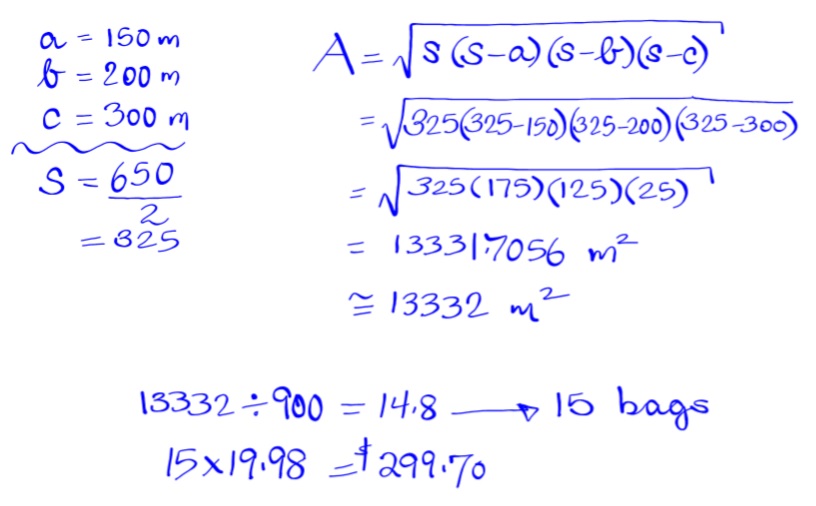 a = 150 m
b = 200 m
c = 300 m
S = 650/2
= 325
A = √s(s-a)(s-b)(s-c)
= √325(325-150)(325-200)(325-300)
= √325(175)(125)(25)
= 13331.7056 m²
≅ 13332 m²
13332 ÷ 900 = 14.8 → 15 bags
15 × 19.98 = $299.70